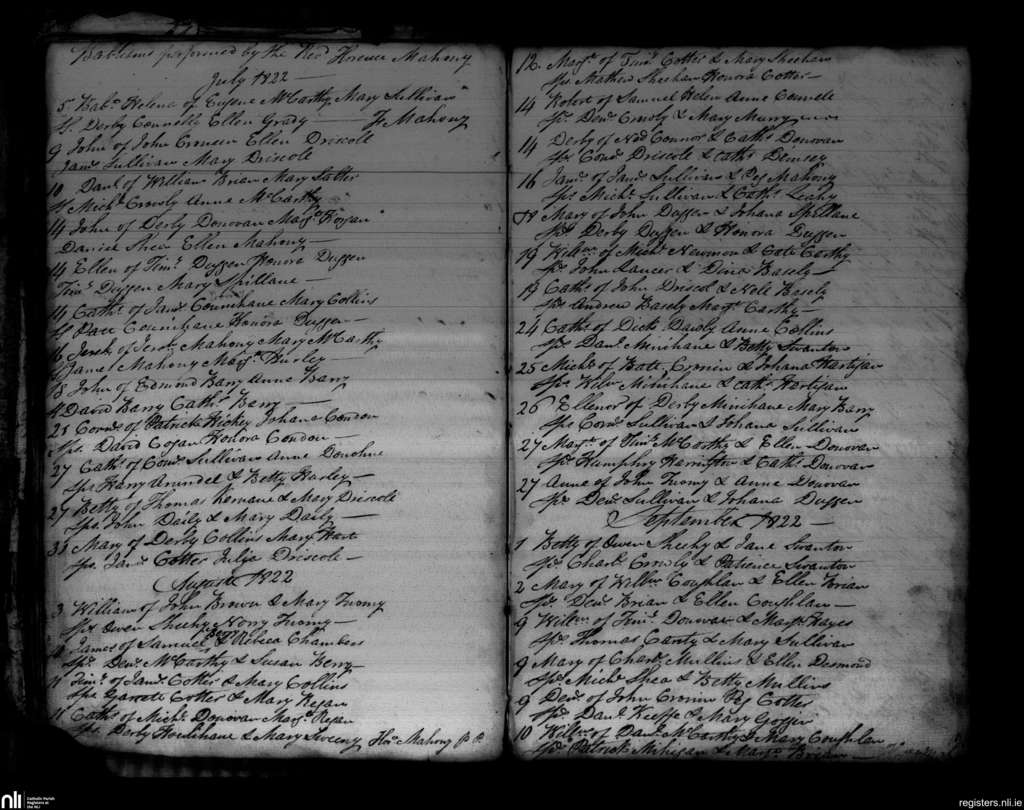 Baptisms performed by the Revd Florence Mahony
July 1822 —
5 Bab. Helena of Eugene McCarthy Mary Sullivan
Sp. Derby Connell Ellen Grady — F Mahony
9 John of John Cronien Ellen Driscoll
Jams. Sullivan Mary Driscole
10 Danl of William Brien Mary
Sp Michl. Crowly Anne McCarthy
14 John of Derby Donovan Margt.
Daniel Shea Ellen Mahony —
14 Ellen of Timy. Duggen Honora Duggen
Timy. Duggen Mary Spillane —
14 Cathe. of Jams. Counihane Mary Collins
Sp Patt Counihane Honora Duggen —
16 of Mahony Mary McCarthy
Mahony Margt. Hurley —
18 John of Edmond Barry Anne Barry
Sp David Barry Cathe. Barry —
25 Corns. of Patrick Hickey Johana Condon
Sps. David Cogan Honora Condon —
27 Cathe. of Cors. Sullivan Anne Donohue
Sps Harry Arundel & Betty Hurley —
27 Betty of Thomas & Mary Driscole
Sps. John Daily & Mary Daily —
Mary of Derby Collins Mary Hart
Sps. Jams. Cotter Julia Driscole —
August 1822
3 William of John Brown & Mary Twomy
Sps Owen Sheehy Nory Twomy —
James of Samuel & Rebeca Chambers
Sps. Denis. McCarthy & Susan Berry —
11 Timy. of Jams. Cotter & Mary Collins
Sps Garrett Cotter & Mary Regan
11 Cathe. of Michl. Donovan Margt. Regan
Sps. Derby Houlihane & Mary Sweeny Flor. Mahony P. P.
12. Margt. of Timy. Cotter & Mary Sheehan
Sps. Mathew Sheehan Honora Cotter —
14 Robert of Samuel Helen Anne Connell
Sps. Denis. Crowly & Mary Murry
14 Derby of Ned Connor & Cathe. Donovan
Sps Cors. Driscole & Cathe. Dempsey
16 Jams. of Jams. Sullivan & Peg Mahony
Sps. Michl. Sullivan & Cathe. Leahy
18 Mary of John Duggen & Johana Spillane
Sps Derby Duggen & Honora Duggen
19 Willm. of Michl. Newman & Cate Carthy
Sps. John & Dina Basely —
19 Cathe. of John Driscol & Nell Basely
Sps Andrew Basely Margt. Carthy —
24 Cathe. of Dick Dawly Anne Collins
Sps. Danl. Minihane & Betty Swanton
25 Michl. of Batt. Cronin & Johana Hartigan
Sps. Willm. Minihane & Cathe. Hartigan
26 Ellenor of Derby Minihane Mary Barry
Sps Cors. Sullivan & Johana Sullivan
27 Margt. of Timy. McCarthy & Ellen Donovan
Sps. Humphry Harrington & Cathe. Donovan
27 Anne of John Twomy & Anne Donovan
Sps. Denis. Sullivan & Johana Duggen
September 1822 —
1 Betty of Owen Sheehy & Jane Swanton
Sps. Charls. Crowly & Patience Swanton
2 Mary of Willm. Coughlan & Ellen Brien
Sps. Denis. Brien & Ellen Coughlan —
9 Willm. of Timy. Donovan & Margt. Hayes
Sps Thomas Carty & Mary Sullivan
9 Mary of Charls. Mullins & Ellen Desmond
Sps. Michl. Shea & Betty Mullins
9 Denis. of John Cronin Peg Cotter
Sps. Danl. Keeffe & Mary Goggin
10 Willm. of Danl. McCarthy & Mary Coughlan
Sps. Patrick Mihigan & Margt. Brien —
nli
Catholic Parish
Registers at
the NLI
registers.nli.ie